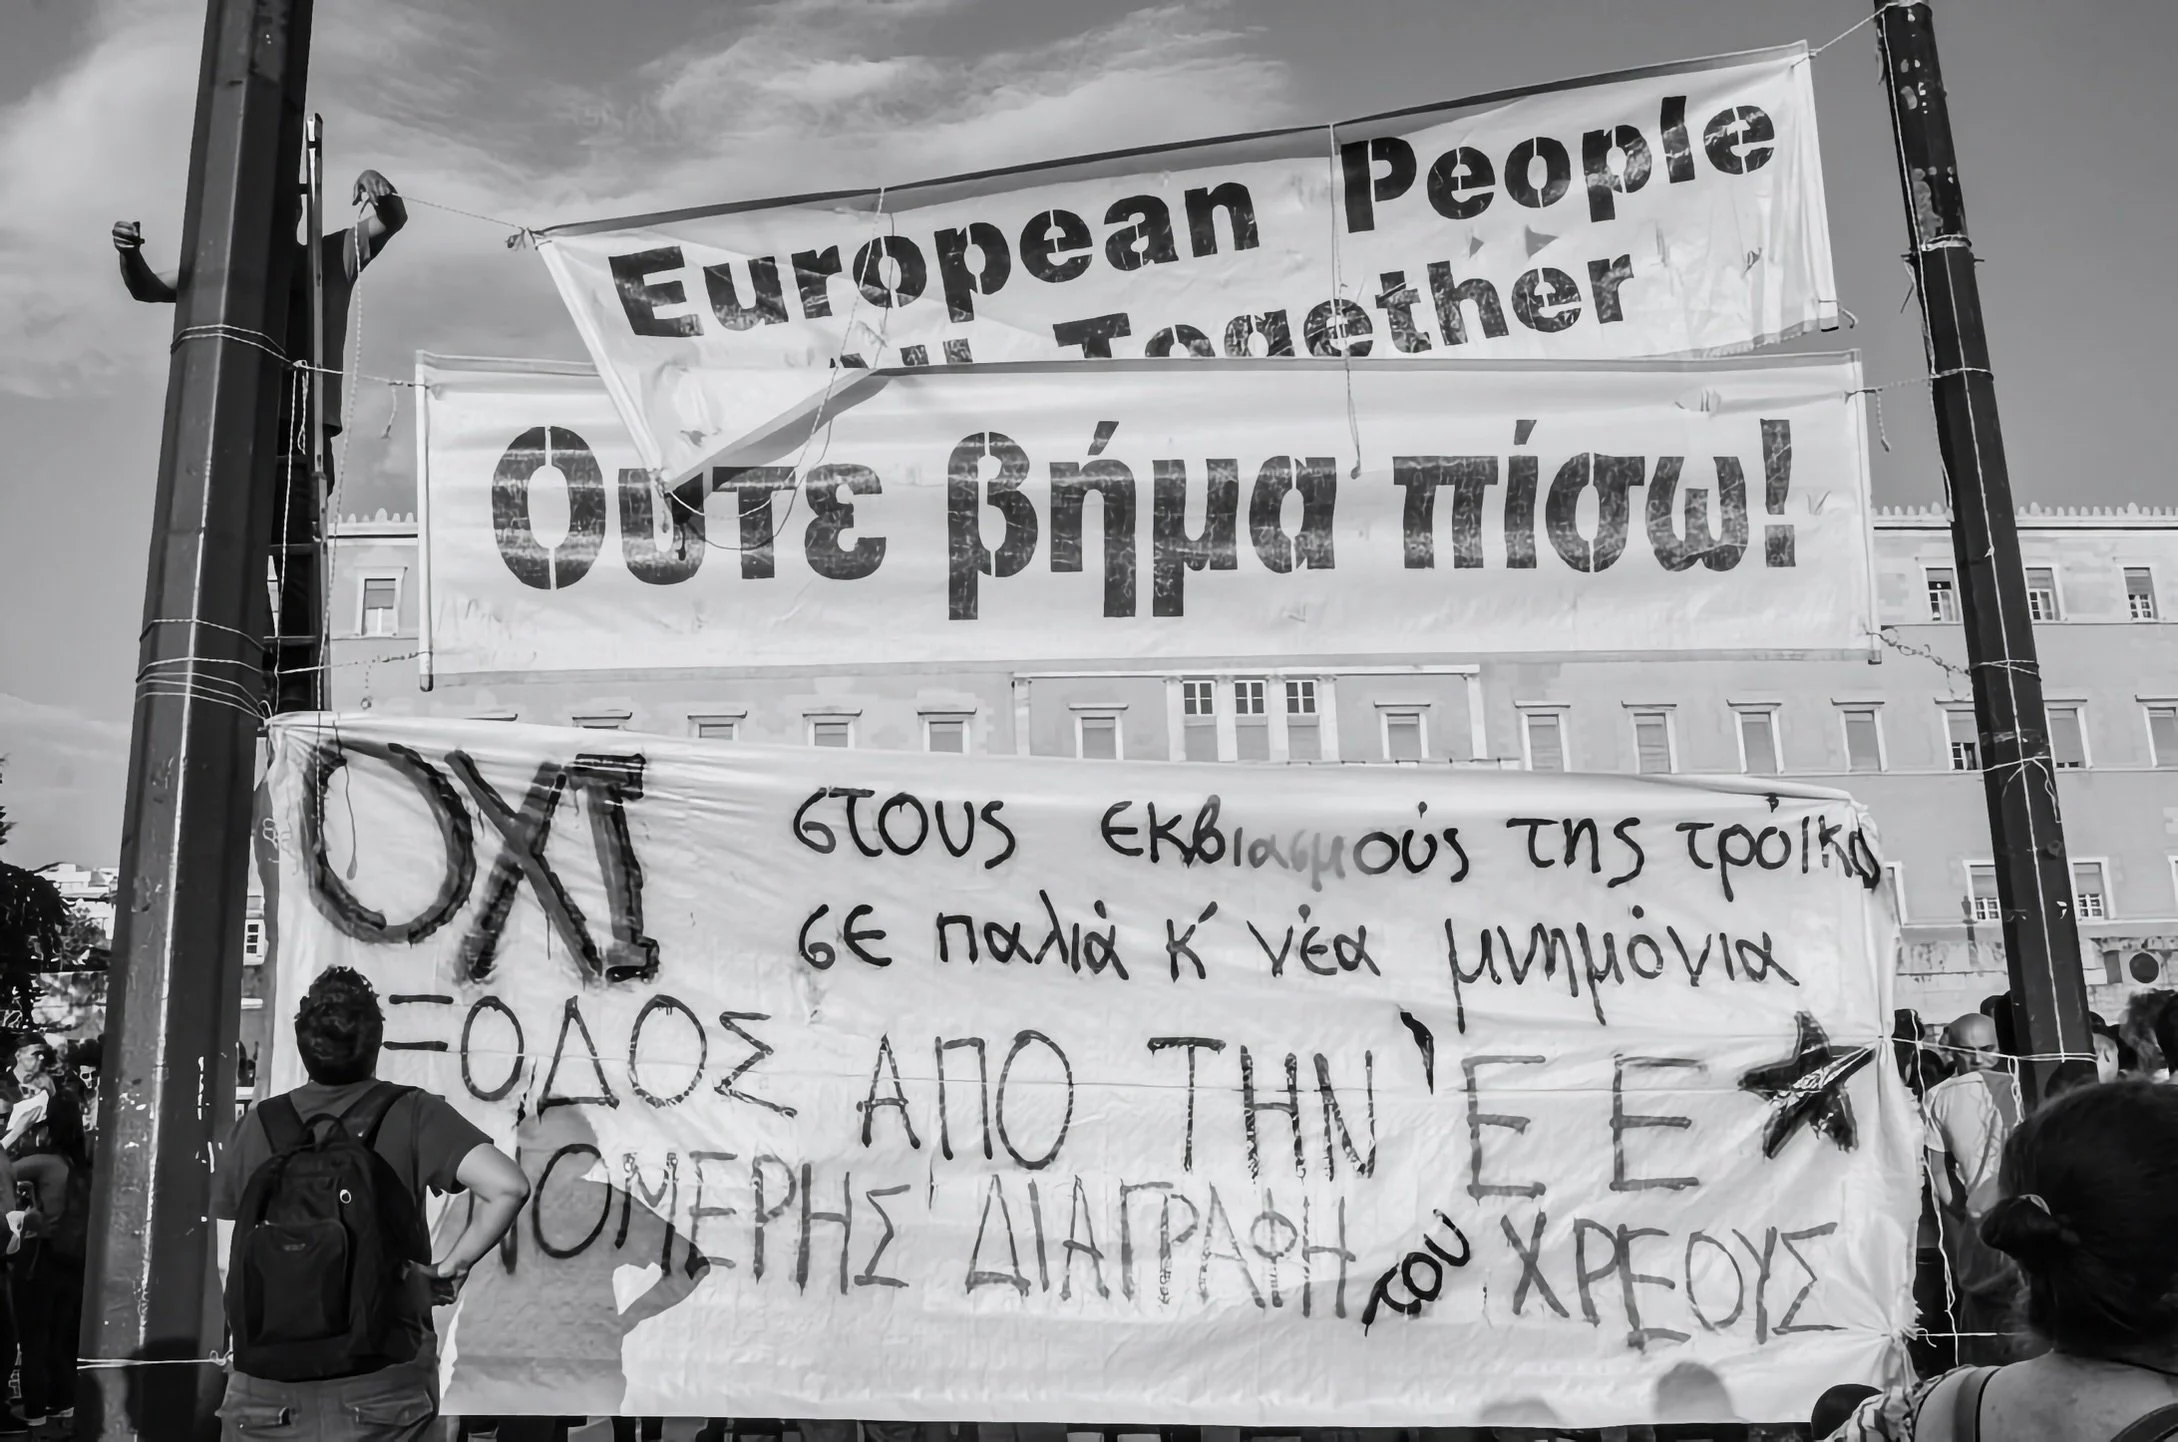 European People
Together
Ουτε βήμα πίσω!
ΟΧΙ στους εκβιασμούς της τρόικα
σε παλιά κ' νέα μνημόνια
ΞΟΔΟΣ ΑΠΟ ΤΗΝ 'ΕΕ
ΝΟΜΕΡΗΣ ΔΙΑΓΡΑΦΗ του ΧΡΕΟΥΣ